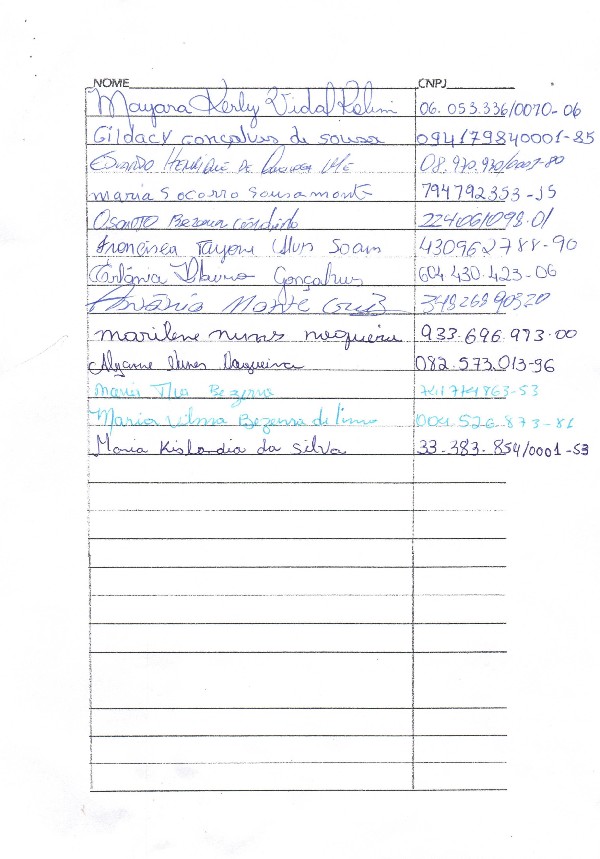 NOME CNPJ
Mayara Kerly Vidal 06.053.336/0070-06
Gildacy Gonçalves de sousa 094179840001-85
Eduardo Henrique de 08.970.970/0001-80
maria Socorro Sousa monte 794792353-15
Osorio Bezerra Cândido 224061098.01
Francisca Tayane Alves Soares 430962788-90
Antônia Gonçalves 604.430.423-06
Antônio Monte Cruz 34826890320
marilene nunes nogueira 933.696.973-00
Nunes Nogueira 082.573.013-96
Maria Bezerra
Maria Vilma Bezerra de lima 004.526.873-81
Maria Kislandia da Silva 33.383.854/0001-53